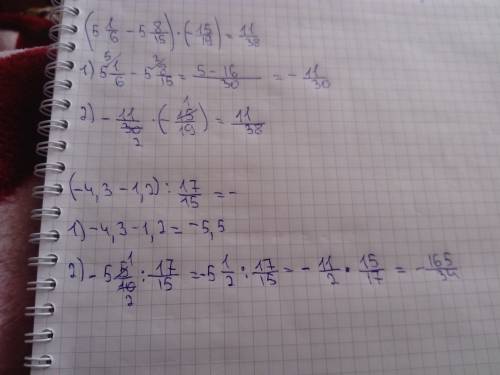 (5 1/6 - 5 8/15) · (- 15/19) = 11/38
1) 5 1/6 - 5 8/15 = (5 - 16)/30 = - 11/30
2) - 11/30 · (- 15/19) = 11/38
(-4,3 - 1,2) : 17/15 = -
1) -4,3 - 1,2 = -5,5
2) - 5 5/10 : 17/15 = -5 1/2 : 17/15 = - 11/2 · 15/17 = - 165/34